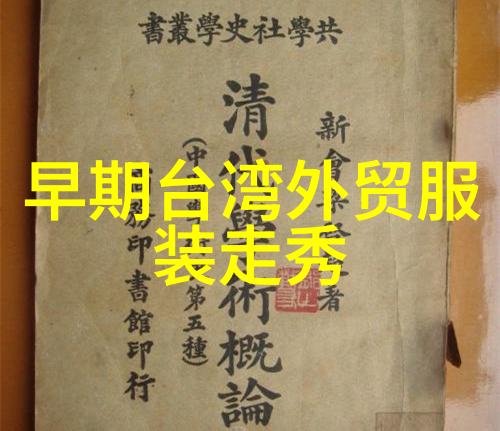 共學社史學叢書
新會梁著
清代學術概論
(中國學第五種)
務印書館印行
早期台湾外贸服
装走秀